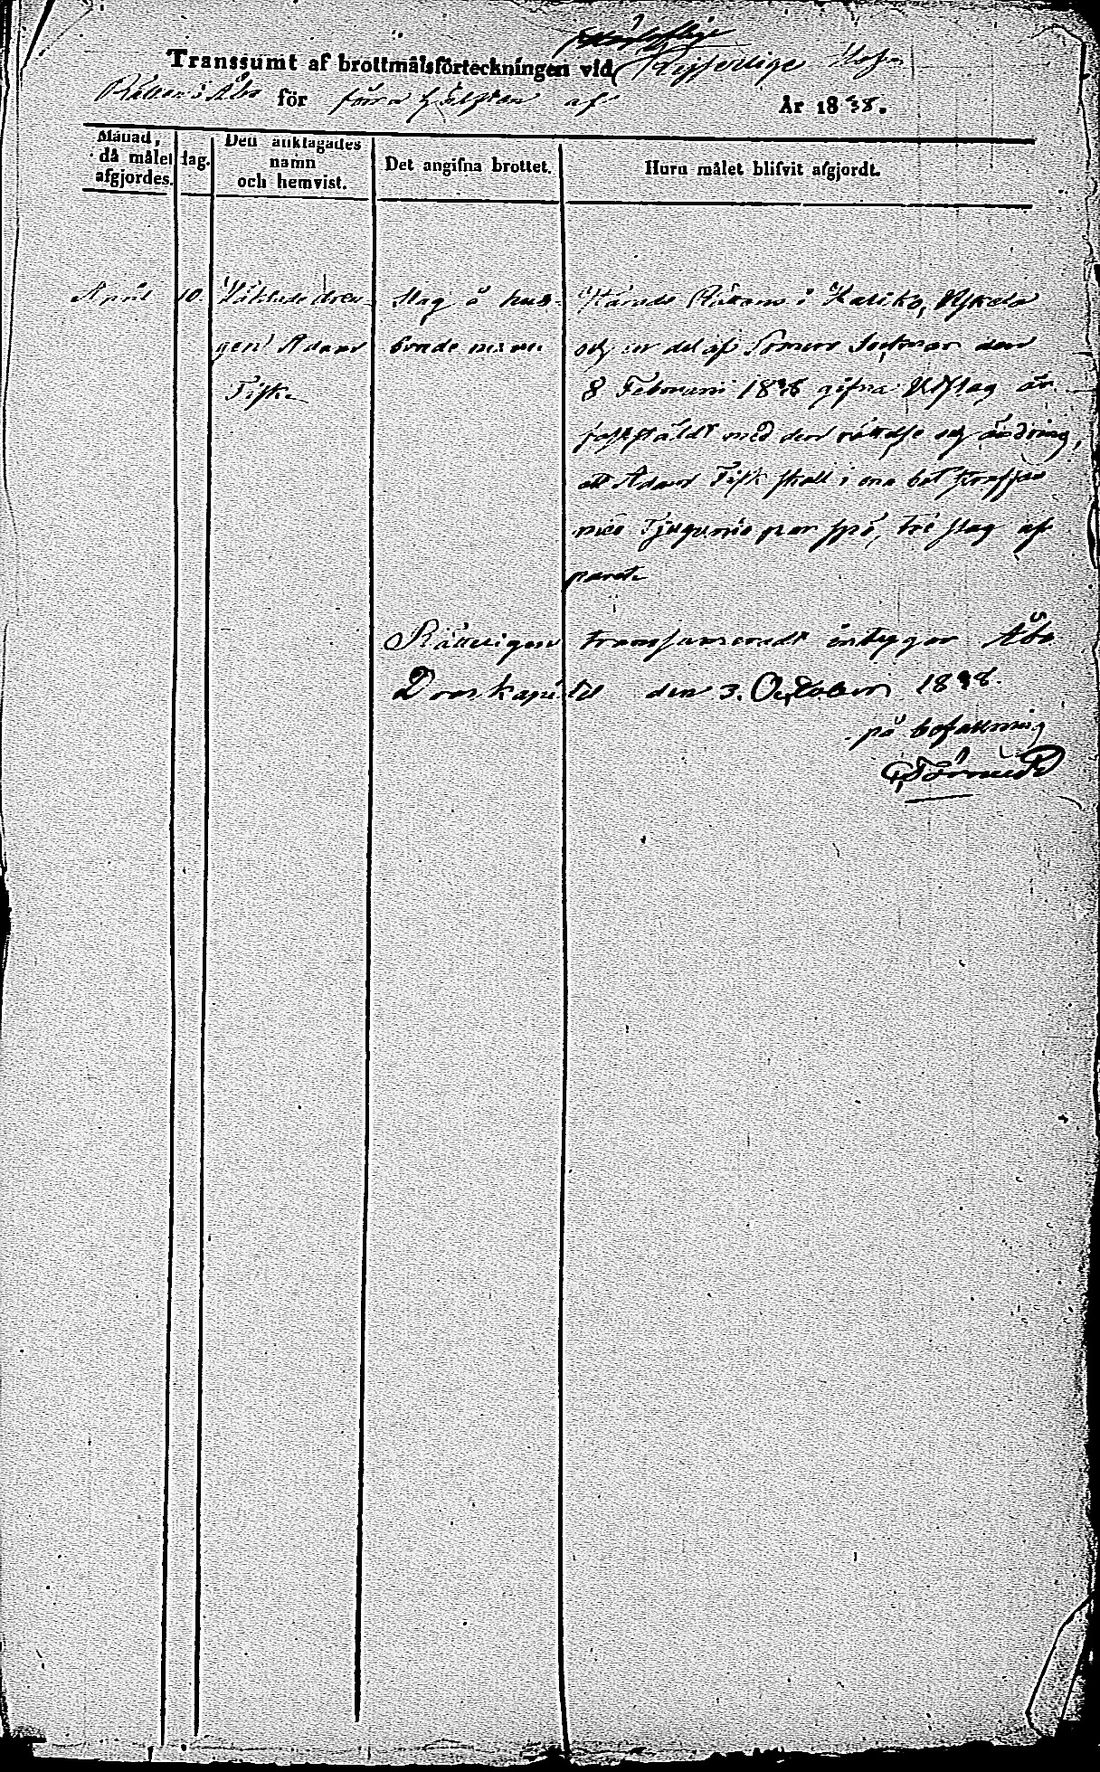 Transsumt af brottmålsförteckningen vid Kejserlige Hof
Rätten i Åbo för förra hälften af År 1838.
Månad, då målet afgjordes.
dag.
Den anklagades namn och hemvist.
Det angifna brottet.
Huru målet blifvit afgjordt.
April
10.
Häktade drän-
gen Adam
Fisk.
slag å hus-
bonde
Härads Rätten i Halikko, Uskela
och en del af Somero Socknar den
8 Februari 1838 gifna Utslag är
fastställdt med den rättelse och ändring,
att Adam Fisk skall i ena bot straffas
med Tjugunio par spö, tre slag af
paret.
Rätteligen transsumeradt intygar Åbo
Domkapitel den 3. October 1838.
på befallning